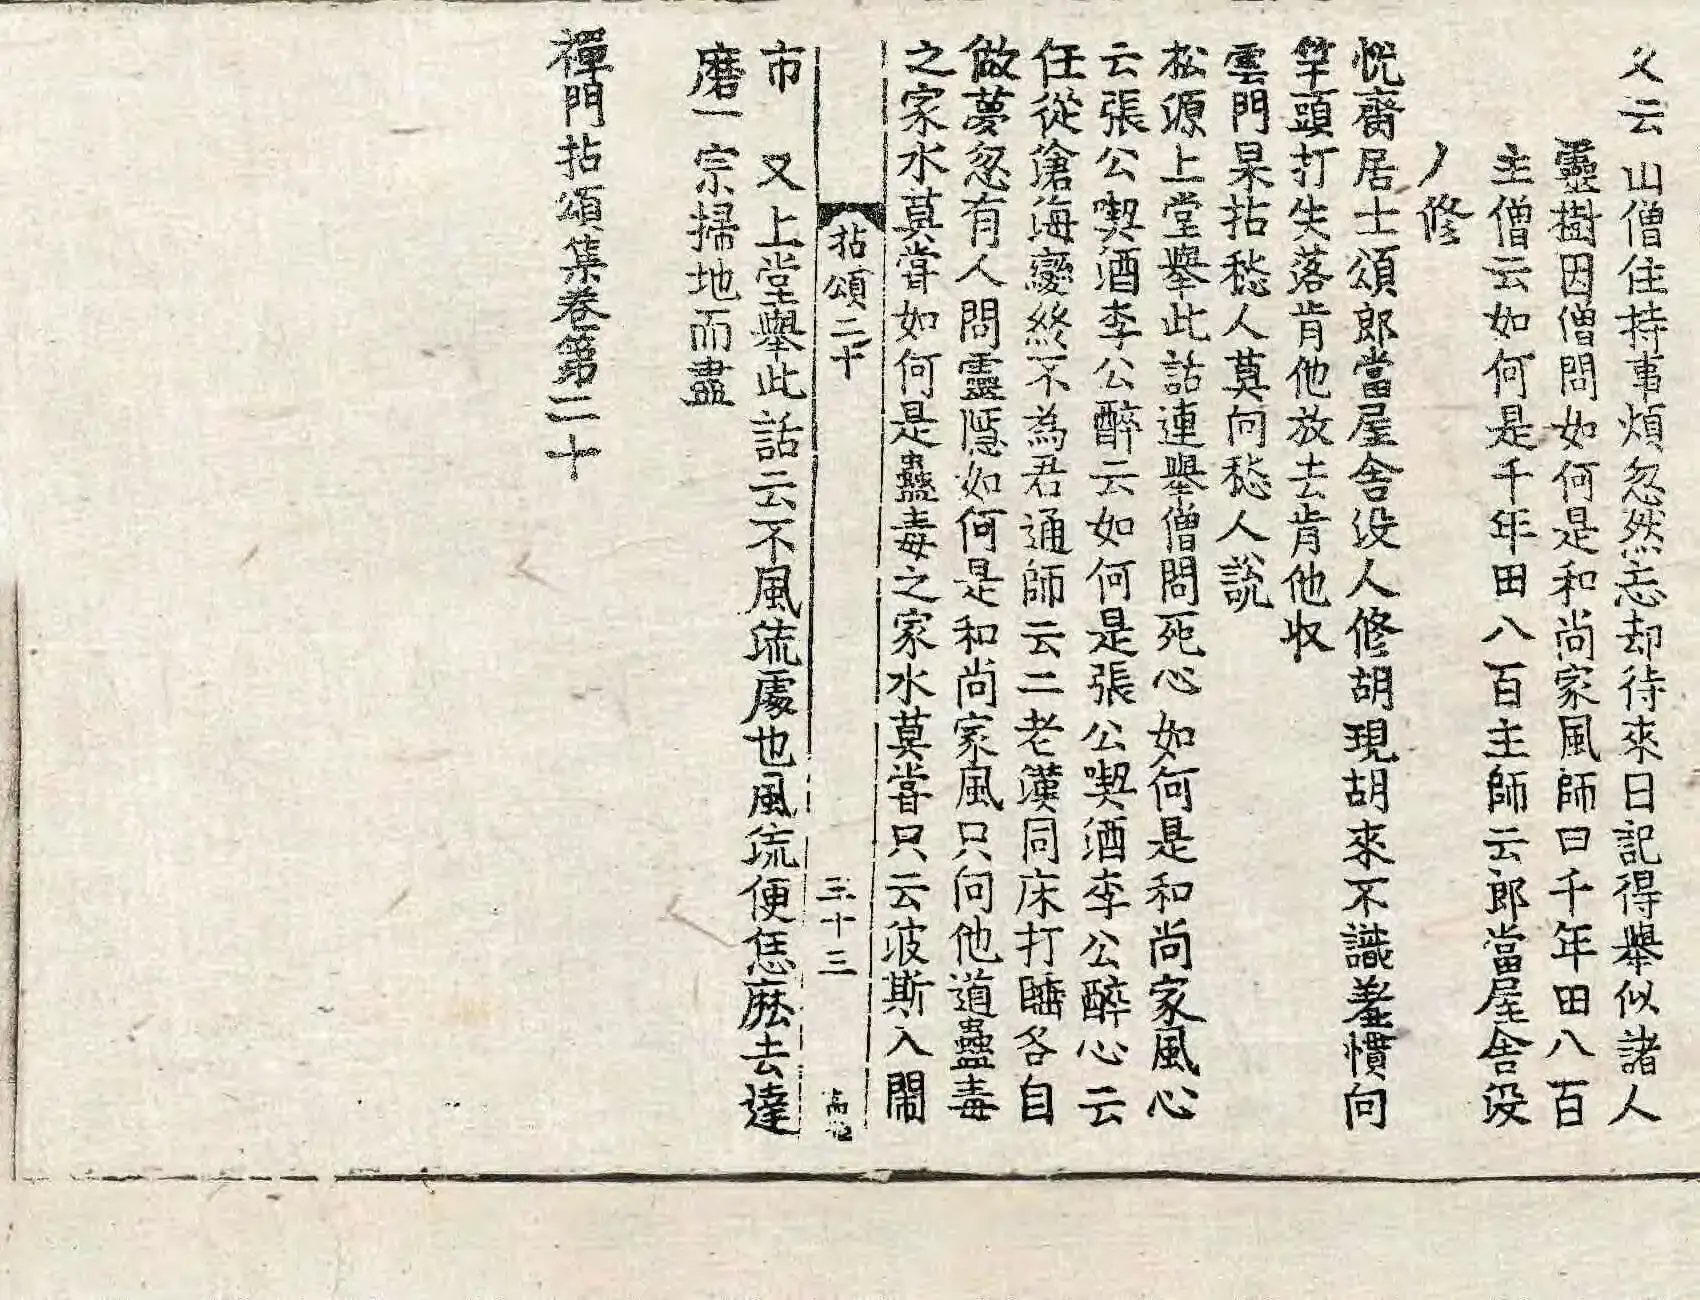 又云山僧住持事煩忽然忘却待來日記得舉似諸人
靈樹因僧問如何是和尚家風師曰千年田八百
主僧云如何是千年田八百主師云郎當屋舍没
人修
悦齋居士頌郎當屋舍没人修胡現胡來不識羞慣向
竿頭打失落肯他放去肯他收
雲門杲拈愁人莫向愁人說
松源上堂舉此話連舉僧問死心如何是和尚家風心
云張公喫酒李公醉云如何是張公喫酒李公醉心云
任從滄海變終不為君通師云二老漢同床打睡各自
做夢忽有人問靈隱如何是和尚家風只向他道蠱毒
之家水莫嘗如何是蠱毒之家水莫嘗只云波斯入鬧
拈頌二十 三十三
市 又上堂舉此話云不風流處也風流便恁麽去達
磨一宗掃地而盡
禪門拈頌集卷第二十